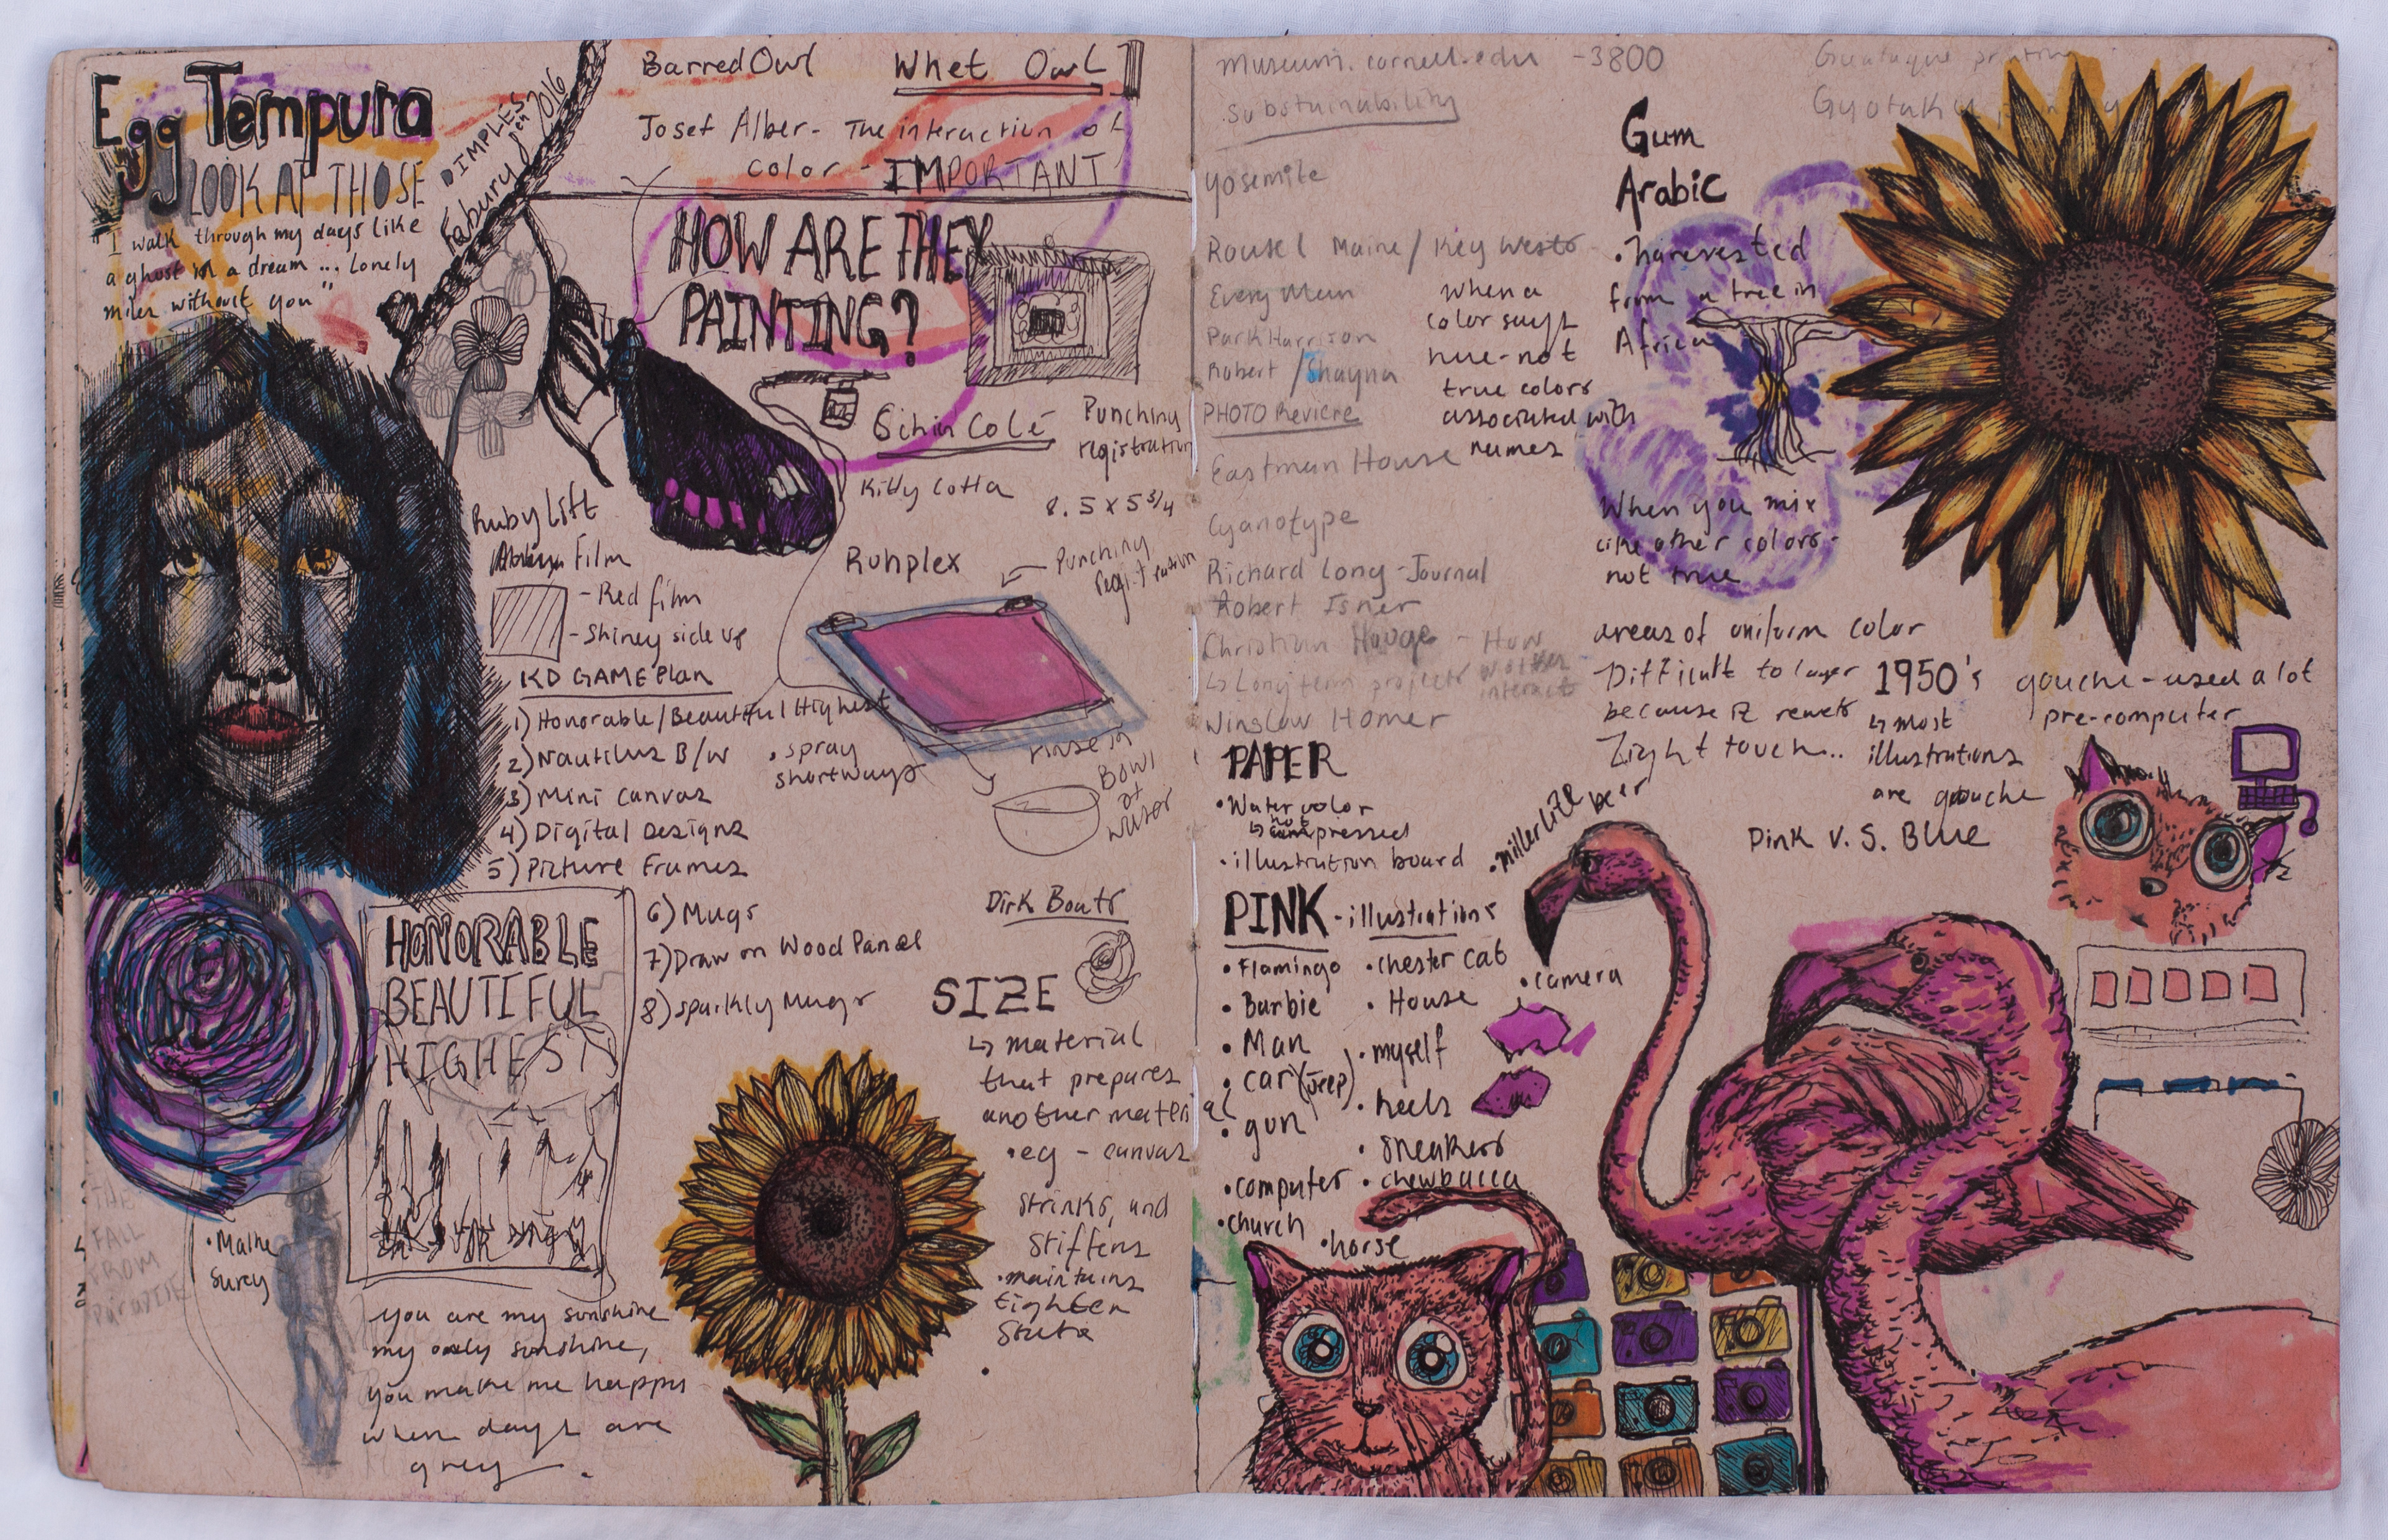 Egg Tempura
LOOK AT THOSE
DIMPLES
2016
"I walk through my days like
a ghost in a dream... Lonely
miles without you"
Barred Owl
Whet Owl
Josef Alber - The interaction of
color - IMPORTANT
HOW ARE THEY
PAINTING?
Punching
registration
Kitty Cotta
8.5 x 5 3/4
Ruby Lift
Film
- Red film
- Shiney side up
Ruhplex
Punching
KD GAMEPlan
1) Honorable/Beautiful Highest
2) Nautilus B/W
3) Mini canvas
4) Digital Designs
5) Picture Frames
6) Mugs
7) Draw on Wood Panel
8) sparkly Mugs
• spray
shortways
rinse in
Bowl
of
water
HONORABLE
BEAUTIFUL
HIGHEST
Dirk Bouts
SIZE
↳ material
that prepares
another material
• eg - canvas
Strinks, and
Stiffens
• maintains
tighter
State
THE
FALL
FROM
Paradise
you are my sunshine
my only sunshine,
you make me happy
when days are
grey
museum.cornell.edu -3800
Substainability
Yosemite
Maine / Key West
Every Mein
Park Harrison
Robert / Shayna
PHOTO Reviere
Eastman House
Cyanotype
Richard Long - Journal
Robert Isner
Christian Houge - How
↳ Long term projects
interact
Winslow Homer
when a
color says
hue - not
true colors
associated with
names
Gyotaku
Gum
Arabic
• harevested
from a tree in
Africa
When you mix
like other colors -
not true
areas of uniform color
Difficult to layer
because it rewets
Light touch...
1950's
↳ most
illustrations
are gouche
gouche - used a lot
pre-computer
Pink V.S. Blue
PAPER
• Water color
↳ not pressed
• illustration board
PINK - illustrations
• Flamingo
• Barbie
• Man
• car (Jeep)
• gun
• computer
• church
• horse
• chester cat
• House
• myself
• heels
• sneakers
• chewbacca
• miller Lite beer
• camera